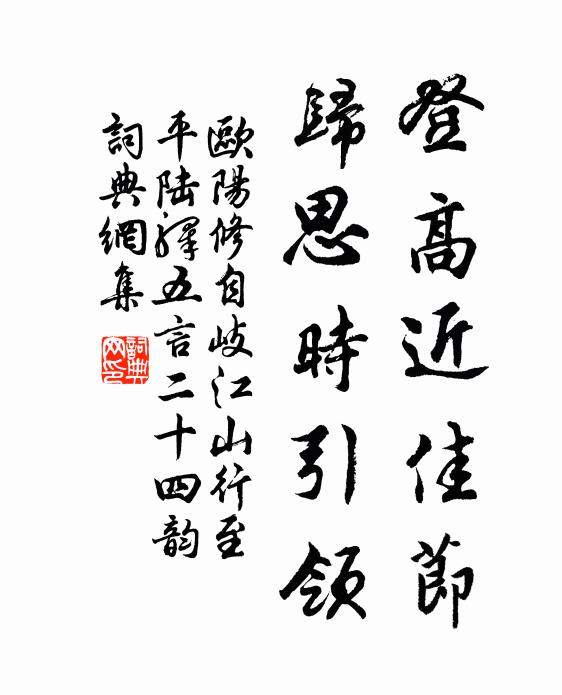 登高近佳節
歸思時引領
歐陽修自岐江山行至
平陆驛五言二十四韵
詞典網集
詞典网印